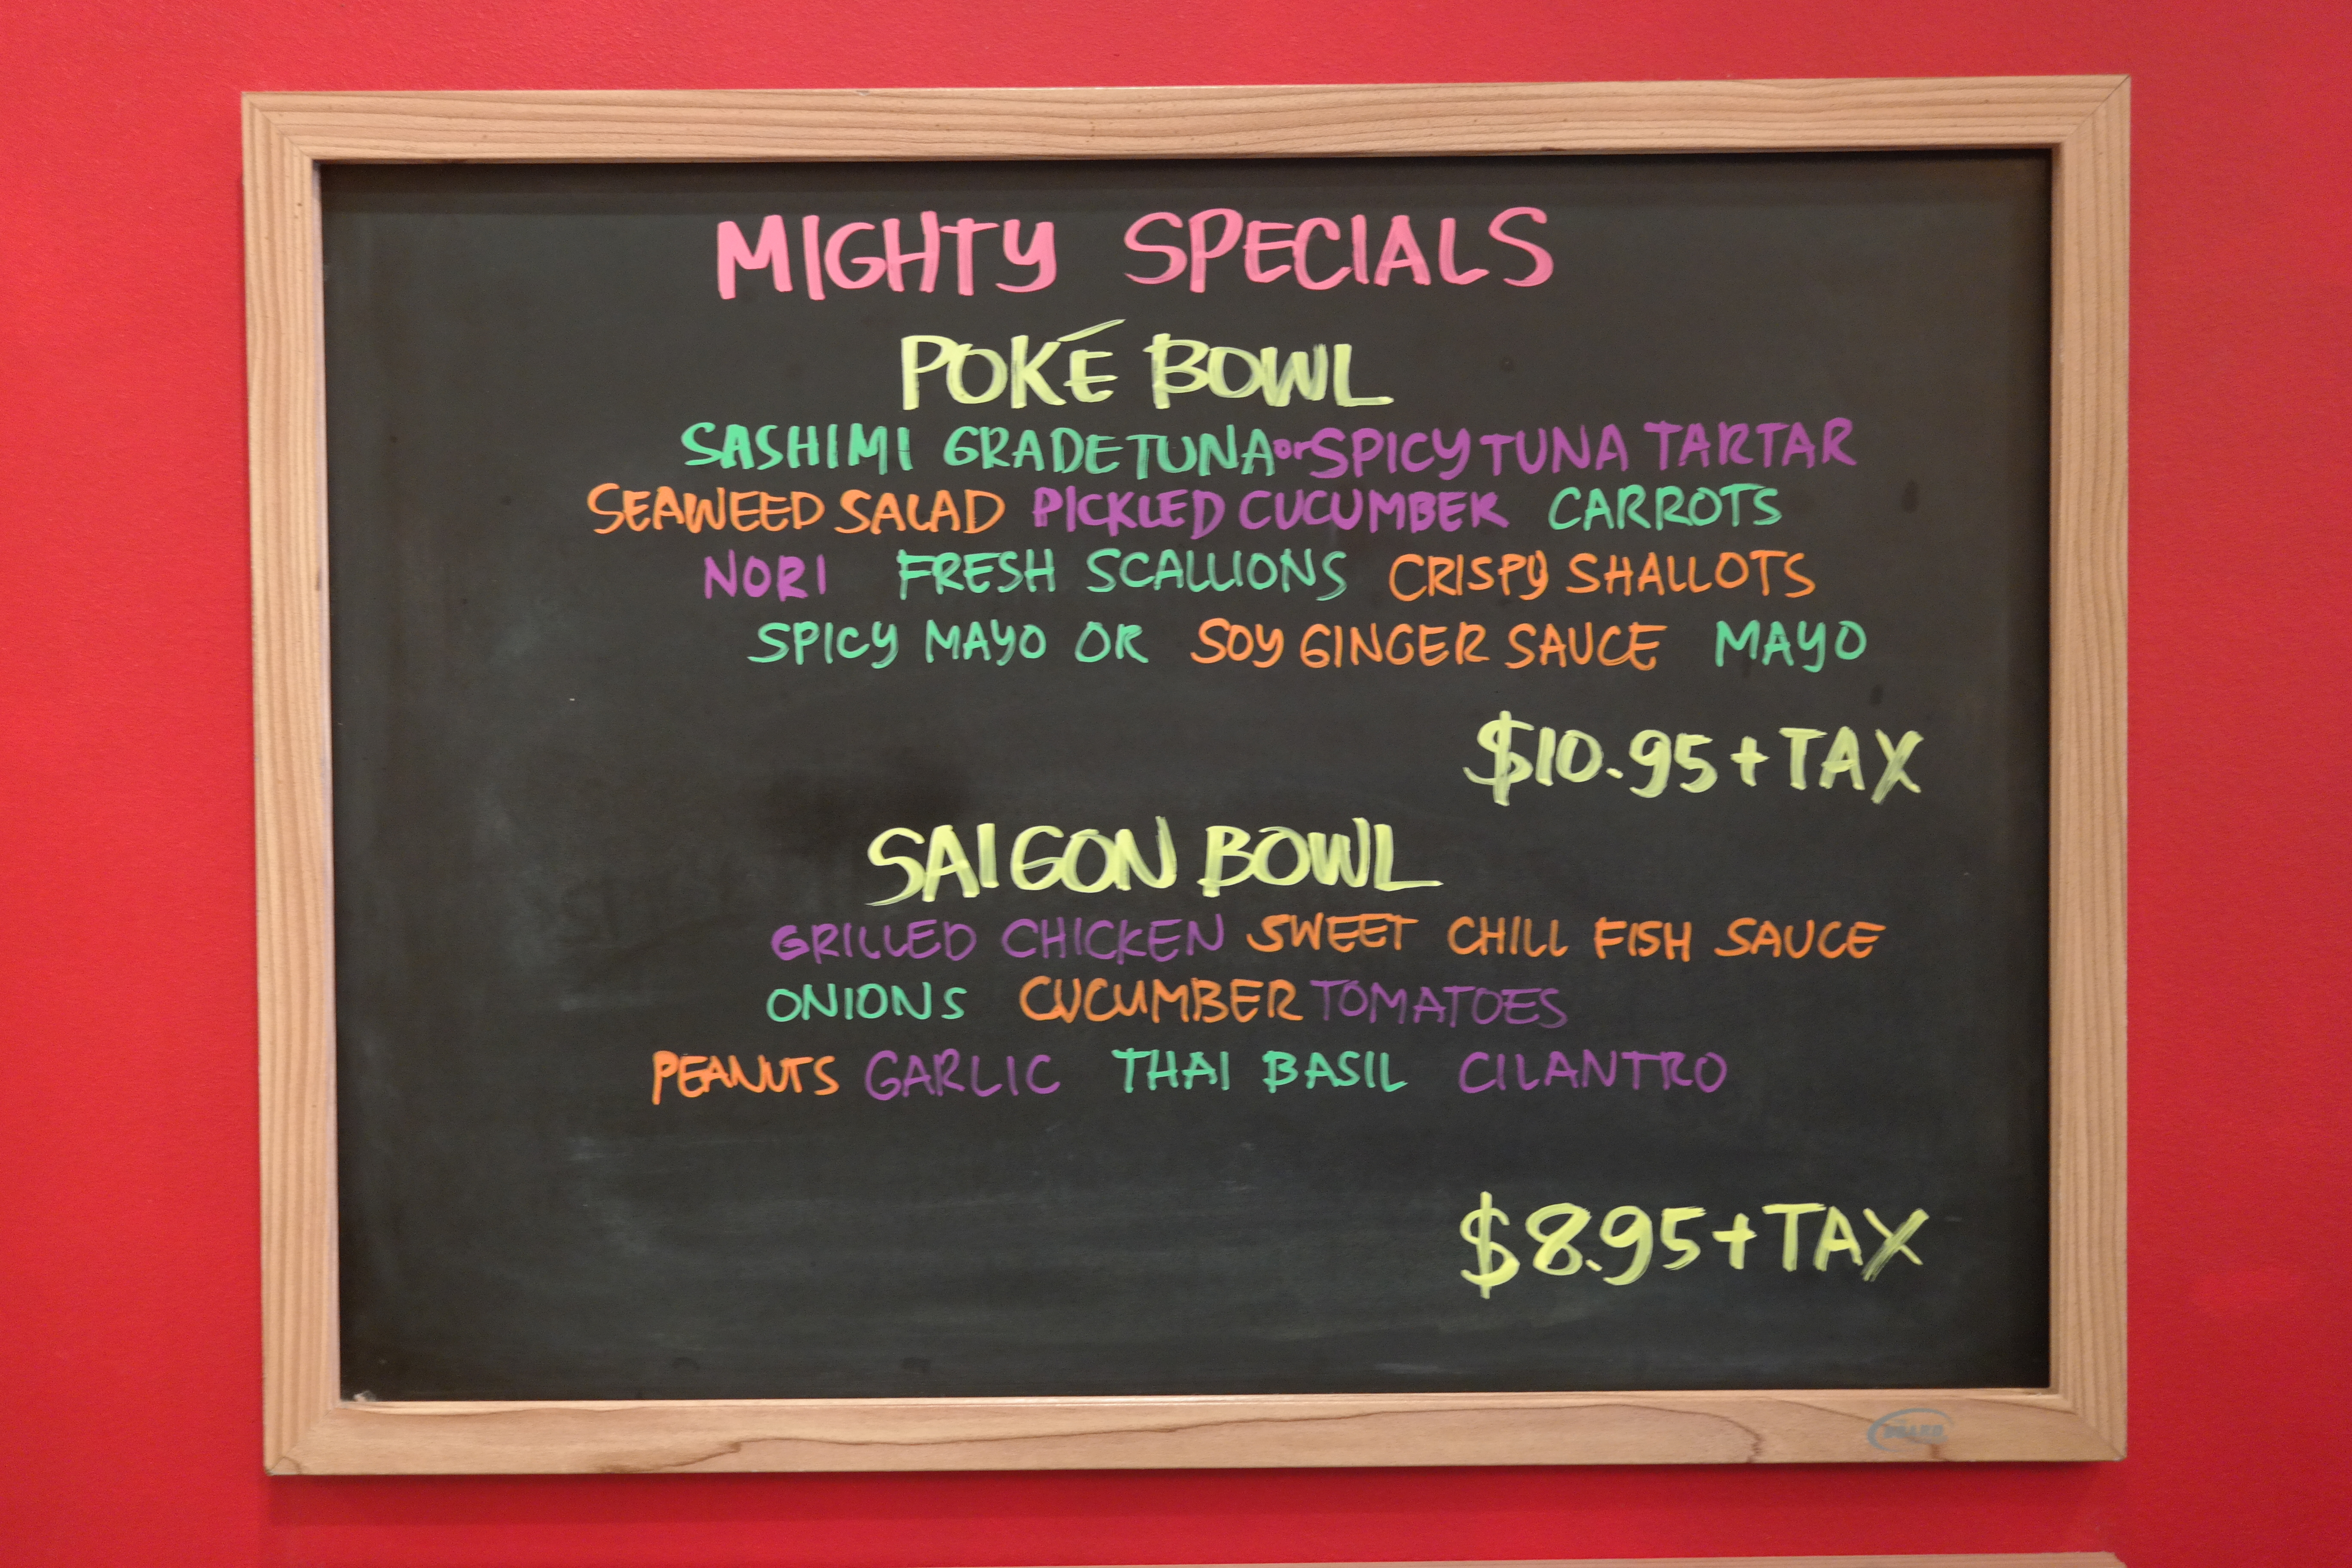 MIGHTY SPECIALS
POKÉ BOWL
SASHIMI GRADE TUNA or SPICY TUNA TARTAR
SEAWEED SALAD PICKLED CUCUMBER CARROTS
NORI FRESH SCALLIONS CRISPY SHALLOTS
SPICY MAYO OR SOY GINGER SAUCE MAYO
$10.95+TAX
SAIGON BOWL
GRILLED CHICKEN SWEET CHILL FISH SAUCE
ONIONS CUCUMBER TOMATOES
PEANUTS GARLIC THAI BASIL CILANTRO
$8.95+TAX